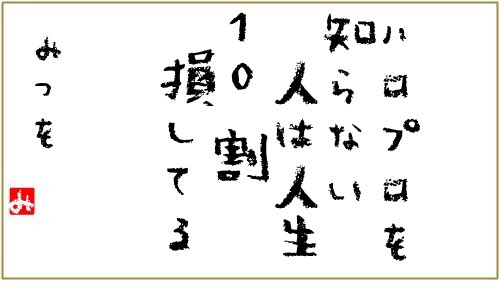 ハロプロを
知らない
人は人生
10割
損してる
みつを
み